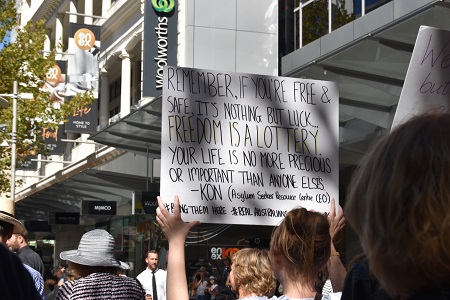 Woolworths
enex
enex
REMEMBER, IF YOU'RE FREE &
SAFE, IT'S NOTHING BUT LUCK.
FREEDOM IS A LOTTERY.
YOUR LIFE IS NO MORE PRECIOUS
OR IMPORTANT THAN ANYONE ELSES
-KON (Asylum Seeker Resource Centre CEO)
#BRING THEM HERE #REAL AUSTRALIANS
MIMCO
enex